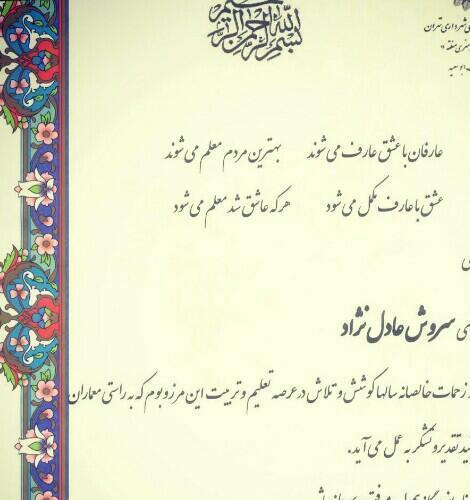 بسم الله الرحمن الرحیم
شهرداری تهران
منطقه ۱۱
عارفان با عشق عارف می شوند بهترین مردم معلم می شوند
عشق با عارف مکمل می شود هر که عاشق شد معلم می شود
سروش عادل نژاد
زحمات خالصانه سالها کوشش و تلاش در عرصه تعلیم و تربیت این مرز و بوم که به راستی معماران
تقدیر و تشکر به عمل می آید.